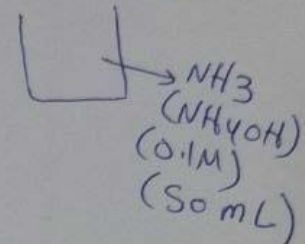 NH3
(NH4OH)
(0.1M)
(50 mL)